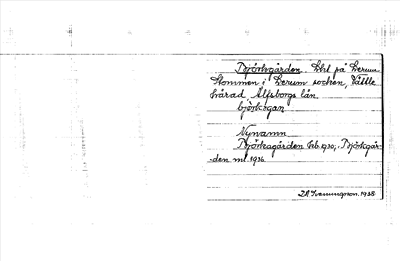 Björkgården. Lht på Lerum
stommen i Lerum socken, Vättle
härad Älfsborgs län.
björkögan
Nynamn
Björkagården Jrb. 1930; Björkgår-
den ml. 1936
Svenungsson. 1938